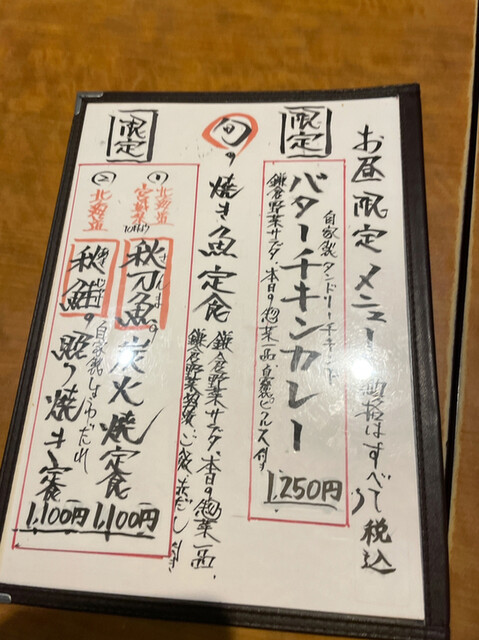 お昼限定メニュー 価格はすべて税込
限定
バターチキンカレー
自家製タンドリーチキン
鎌倉野菜サラダ、本日の惣菜一品、自家製ピクルス付
1,250円
旬の焼き魚定食
鎌倉野菜サラダ、本日の惣菜一品、
鎌倉野菜
ご飯、赤だし付き
限定
① 北海道
秋刀魚の炭火焼定食
さんま
1,100円
② 北海道
秋鮭の照り焼き定食
あきじゃけ
自家製しょうゆだれ
1,100円